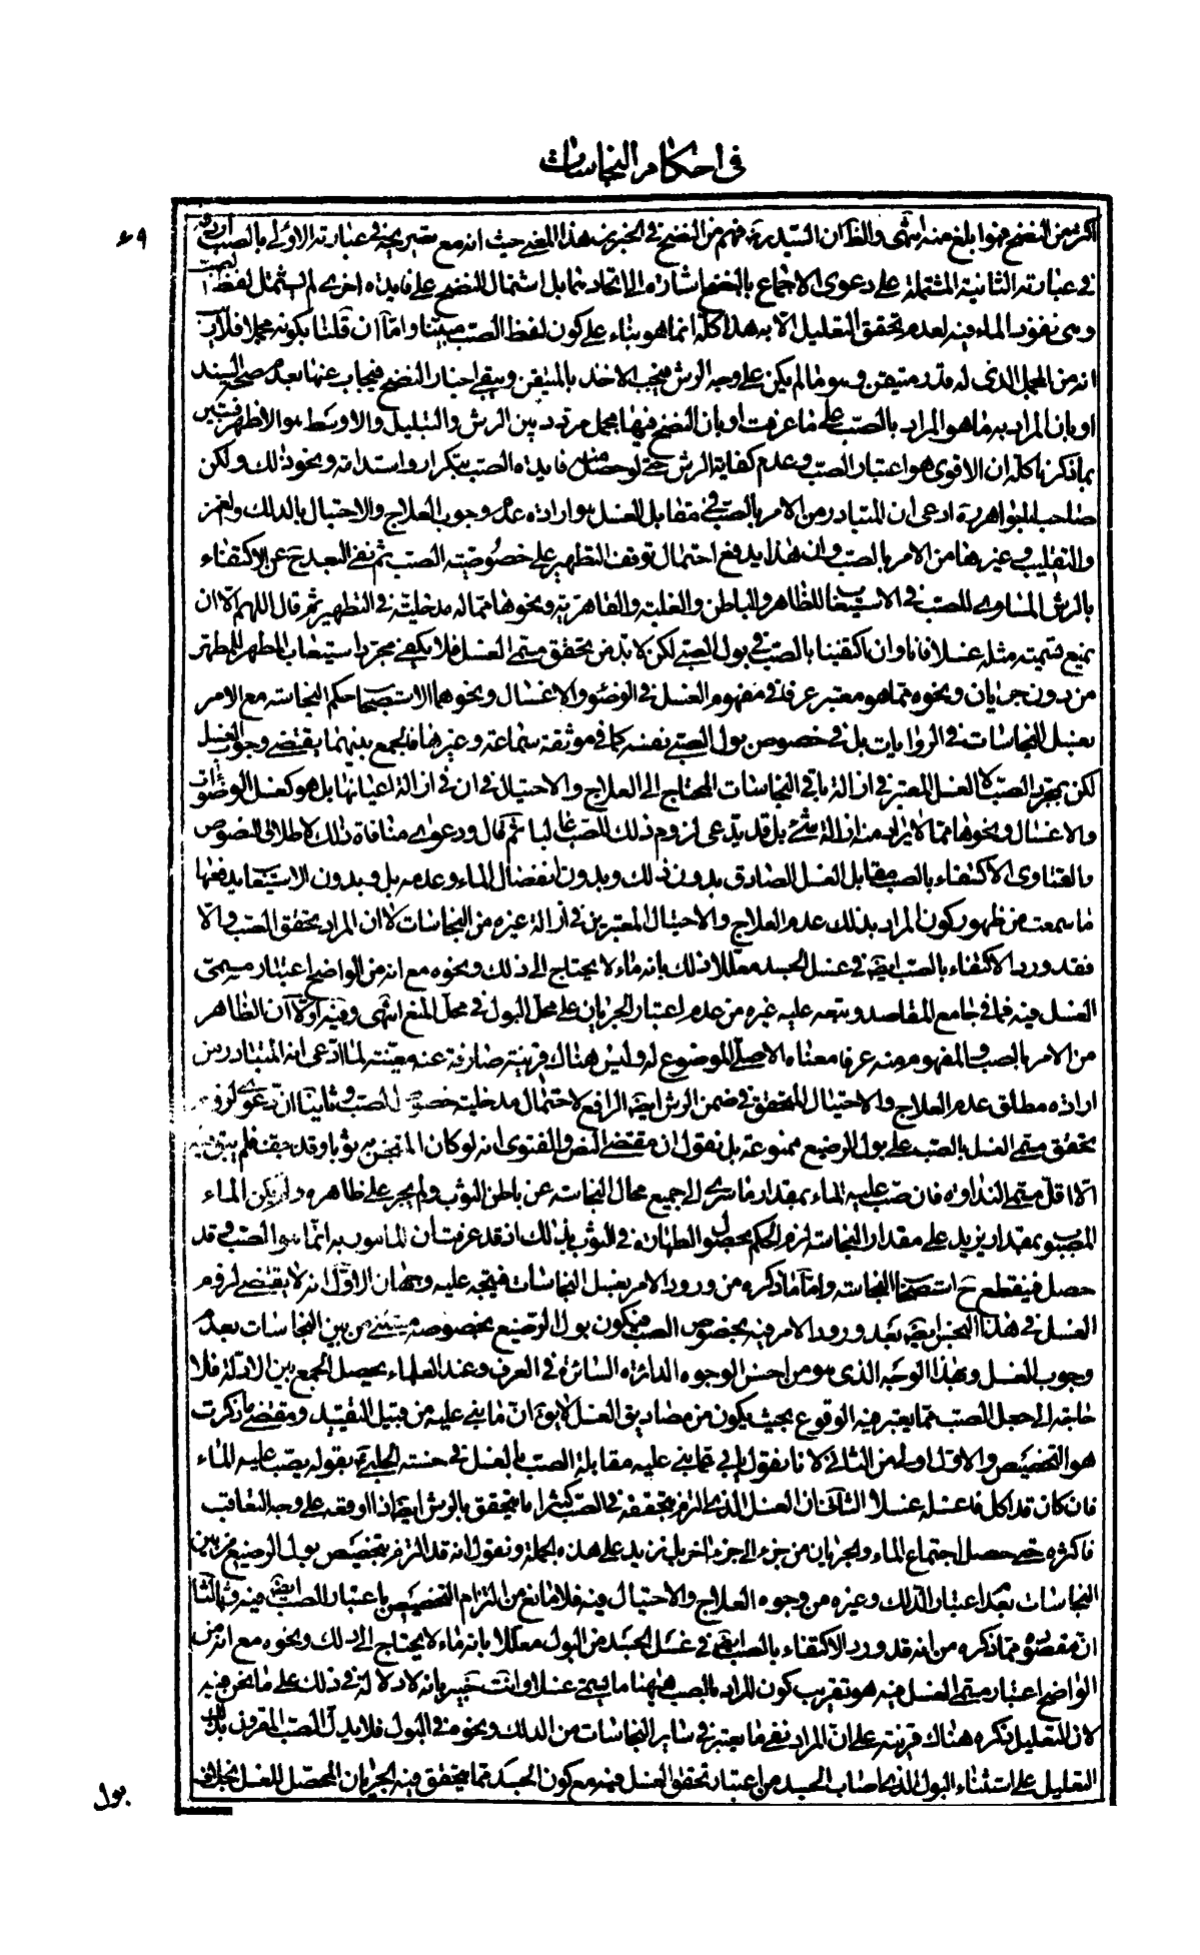 في احكام النجاسات
٤٩
اكثر من النضح فهو ابلغ منه انتهى والظ ان السيد ره فهم من النضح في الخبرين هذا المعنى حيث انه مع تصريحه في عبارته الاولى بالصب
في عبارته الثانية المشتملة على دعوى الاجماع بالنضح اشارة الى الاتحاد مقابل اشتمال النضح على فايدة اخرى لم يشتمل لفظ الصب
وهى نفوذ الماء فيه لعدم تحقق التقليل الا به هذا كله انما هو بناء على كون لفظ الصب مبيّنا واما ان قلنا بكونه مجملا فلا ريب
انه من المجمل الذى له قدر متيقن وهو ما لم يكن على وجه الرش فيجب الاخذ بالمتيقن ويبقى اخبار النضح فيجاب عنها بعدم صحة السند
او بان المراد به ما هو المراد بالصب على ما عرفت او بان النضح فيها مجمل مردد بين الرش والتبليل والاوسط هو الاظهر فتبين
بما ذكرنا كله ان الاقوى هو اعتبار الصب وعدم كفاية الرش حتى لو حصل منه فايدة الصب بتكرار واستدامة ونحو ذلك ولكن
صاحب الجواهر ره ادعى ان المتبادر من الامر بالصب في مقابل الغسل هو ارادة عدم وجوب العلاج والاحتيال بالدلك والغمز
والتقليب وغيرها من الامر بالصب وان هذا يدفع احتمال توقف التطهير على خصوصية الصب ثم نفى البعد ح عن الاكتفاء
بالرش المساوى للصب في الاستيعاب للظاهر والباطن والغلبة والقاهرية ونحوها مما له مدخلية في التطهير ثم قال اللهم الا ان
يمنع تسميته مثله غسلا فانا وان اكتفينا بالصب في بول الصبى لكن لا بد من تحقق مسمى الغسل فلا يكفى مجرد استيعاب المطهر للمطهر
من دون جريان ونحوه مما هو معتبر عرفا في مفهوم الغسل في الوضوء والاغتسال ونحوهما لاستصحاب حكم النجاسة مع الامر
بغسل النجاسات في الروايات بل في خصوص بول الصبى نفسه كما في موثقة سماعة وغيرها فالجمع بينهما يقتضى وجوب الغسل
لكن بمجرد الصب لا الغسل المعتبر في ازالة باقى النجاسات المحتاج الى العلاج والاحتيال في ان في ازالة اعيانها بل هو كغسل الوضوء
والاغتسال ونحوهما مما لا يراد منه ازالة شئ بل قد يدعى لزوم ذلك للصب غالبا ثم قال ودعوى منافاة ذلك لاطلاق النصوص
والفتاوى الاكتفاء بالصب مقابل الغسل الصادق بدون ذلك وبدون انفصال الماء وعدمه بل وبدون الاستيعاب يدفعها
ما سمعت من ظهور كون المراد بذلك عدم العلاج والاحتيال المعتبرين في ازالة غيره من النجاسات لا ان المراد تحقق الصب والا
فقد ورد الاكتفاء بالصب ايضا في غسل الجسد معللا ذلك بانه ماء لا يحتاج الى ذلك ونحوه مع انه من الواضح اعتبار مسمى
الغسل فيه فما في جامع المقاصد وتبعه عليه غيره من عدم اعتبار الجريان على محل البول في محل المنع انتهى وفيه اولا ان الظاهر
من الامر بالصب والمفهوم منه عرفا معناه الاصلى الموضوع له وليس هناك قرينة صارفة عنه معيّنة لما ادعى انه المتبادر من
ارادة مطلق عدم العلاج والاحتيال المتحقق في ضمن الرش ايضا الرافع لاحتمال مدخلية خصوصية الصب وثانيا ان دعوى لزوم
تحقق مسمى الغسل بالصب على بول الرضيع ممنوعة بل نقول ان مقتضى النص والفتوى انه لو كان المتنجس به ثوبا وقد جفف فلم يبق فيه
الا اقل مسمى النداوة فان صب عليه الماء بمقدار ما سرى الى جميع محال النجاسة عن باطن الثوب ولم يجر على ظاهره ولم يكن الماء
المصبوب بمقدار يزيد على مقدار النجاسة لزم الحكم بحصول الطهارة في الثوب بذلك اذ قد عرفت ان المامور به انما هو الصب وقد
حصل فينقطع ح استصحاب النجاسة واما ما ذكره من ورود الامر بغسل النجاسات فيتجه عليه وجهان الاول انه لا يقتضى لزوم
الغسل في هذا النجس ايضا بعد ورود الامر فيه بخصوص الصب فيكون بول الرضيع بخصوصه مستثنى من بين النجاسات بعدم
وجوب الغسل وبهذا الوجه الذى هو من احسن الوجوه الدائرة السائرة في العرف وعند العلماء يحصل الجمع بين الادلة فلا
حاجة الى جعل الصب مما يعتبر فيه الوقوع بحيث يكون من مصاديق الغسل لا يقال ان ما بنى عليه من قبيل التقييد ومقتضى ما ذكرت
هو التخصيص والاول اولى من الثانى لانا نقول يابى عما بنى عليه مقابلة الصب بالغسل في حسنة الحلبى بقوله يصب عليه الماء
فان كان قد اكل فاغسله غسلا الثانى ان الغسل الذى التزم بتحققه في الصب كثيرا ما يتحقق بالرش ايضا اذا اوقعه على وجه التعاقب
فاكثره حتى حصل اجتماع الماء والجريان من جزء الى جزء اخر بل نزيد على هذه الجملة ونقول انه قد التزم بتخصيص بول الرضيع من بين
النجاسات بعدم اعتبار الدلك وغيره من وجوه العلاج والاحتيال فيه فلا مانع من التزام التخصيص باعتبار الصب ايضا فيه وثالثا
ان مقصوده مما ذكره من انه قد ورد الاكتفاء بالصب ايضا في غسل الجسد من البول معللا بانه ماء لا يحتاج الى دلك ونحوه مع انه من
الواضح اعتبار مسمى الغسل فيه هو تقريب كون المراد بالصب هيهنا ما يسمى غسلا وانت خبير بانه لا دلالة في ذلك على ما نحن فيه
لان التعليل ذكره هناك قرينة على ان المراد نفى ما يعتبر في ساير النجاسات من الدلك ونحوه في البول فلا يدل الصب المقرون بذلك
التعليل على استثناء البول الذى اصاب الجسد من اعتبار تحقق الغسل فيه مع كون الجسد مما يتحقق فيه الجريان المحصل للغسل بخلاف
بول